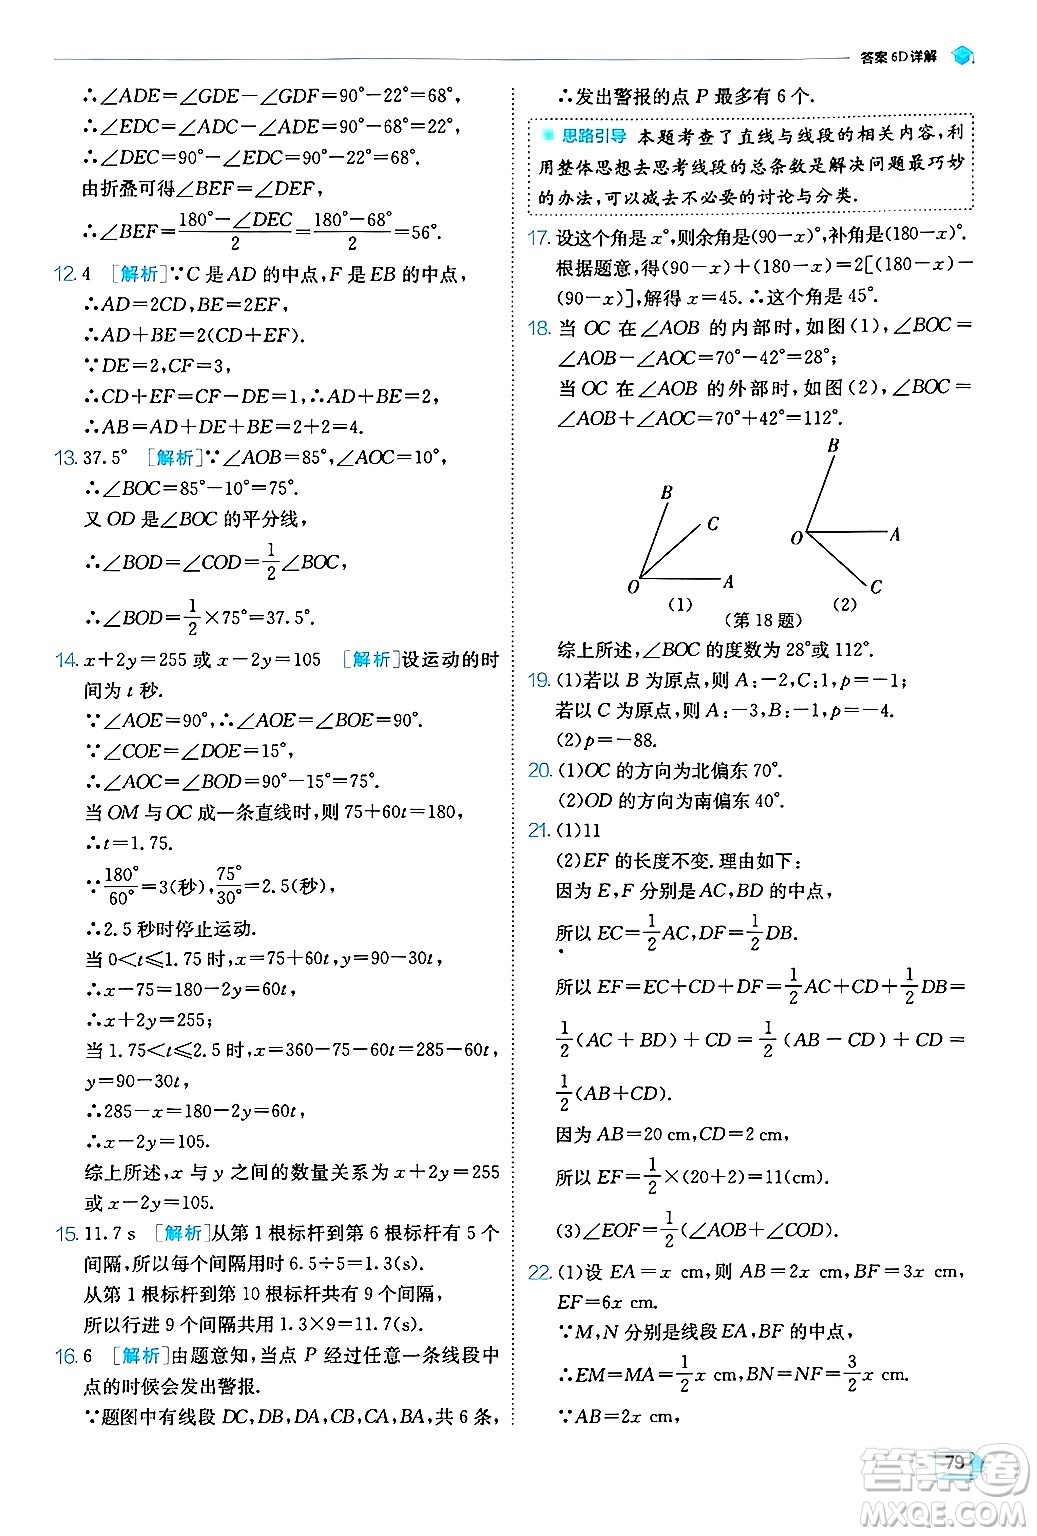 答案 6D 详解
∴∠ADE=∠GDE-∠GDA=90°-22°=68°,
∴∠EDC=∠ADC-∠ADE=90°-68°=22°.
由折叠可得∠BEF=∠DEF,
∴∠BEF=(180°-∠DEC)/2=(180°-68°)/2=56°.
12. 4 [解析]∵C 是 AD 的中点,F 是 EB 的中点,
∴AD=2CD,BE=2EF,
∴AD+BE=2(CD+EF).
∵DE=2,CF=3,
∴CD+EF=CF-DE=1,∴AD+BE=2,
∴AB=AD+DE+BE=2+2=4.
13. 37.5° [解析]∵∠AOB=85°,∠AOC=10°,
∴∠BOC=85°-10°=75°.
又 OD 是∠BOC 的平分线,
∴∠BOD=∠COD=1/2∠BOC,
∴∠BOD=1/2×75°=37.5°.
14. x+2y=255 或 x-2y=105 [解析]设运动的时
间为 t 秒.
∵∠AOE=90°,∴∠AOE=∠BOE=90°.
∵∠COE=∠DOE=15°,
∴∠AOC=∠BOD=90°-15°=75°.
当 OM 与 OC 成一条直线时,75+60t=180,
∴t=1.75.
∵180°/60°=3(秒),75°/30°=2.5(秒),
∴2.5 秒时停止运动.
当 0<t⩽1.75 时,x=75+60t,y=90-30t,
∴x-75=180-2y=60t,
∴x+2y=255;
当 1.75<t⩽2.5 时,x=360-75-60t=285-60t,
y=90-30t,
∴285-x=180-2y=60t,
∴x-2y=105.
综上所述,x 与 y 之间的数量关系为 x+2y=255
或 x-2y=105.
15. 11.7 s [解析]从第 1 根标杆到第 6 根标杆有 5 个
间隔,所以每个间隔用时 6.5÷5=1.3(s).
从第 1 根标杆到第 10 根标杆共有 9 个间隔,
所以行进 9 个间隔共用 1.3×9=11.7(s).
16. 6 [解析]由题意知,当点 P 经过任意一条线段中
点的时候会发出警报.
∵题图中有线段 DC,DB,DA,CB,CA,BA,共 6 条,
∴发出警报的点 P 最多有 6 个.
思路引导 本题考查了直线与线段的相关内容,利
用整体思想去思考线段的总条数是解决问题最巧妙
的办法,可以减去不必要的讨论与分类.
17. 设这个角是 x°,则余角是(90-x)°,补角是(180-x)°.
根据题意,得(90-x)+(180-x)=2[(180-x)-
(90-x)],解得 x=45.∴这个角是 45°.
18. 当 OC 在∠AOB 的内部时,如图(1),∠BOC=
∠AOB-∠AOC=70°-42°=28°;
当 OC 在∠AOB 的外部时,如图(2),∠BOC=
∠AOB+∠AOC=70°+42°=112°.
B
C
O
A
(1)
B
O
A
C
(2)
(第 18 题)
综上所述,∠BOC 的度数为 28°或 112°.
19. (1)若以 B 为原点,则 A:-2,C:1,p=-1;
若以 C 为原点,则 A:-3,B:-1,p=-4.
(2)p=-88.
20. (1)OC 的方向为北偏东 70°.
(2)OD 的方向为南偏东 40°.
21. (1)11
(2)EF 的长度不变.理由如下:
因为 E,F 分别是 AC,BD 的中点,
所以 EC=1/2AC,DF=1/2DB.
所以 EF=EC+CD+DF=1/2AC+CD+1/2DB=
1/2(AC+BD)+CD=1/2(AB-CD)+CD=
1/2(AB+CD).
因为 AB=20 cm,CD=2 cm,
所以 EF=1/2×(20+2)=11(cm).
(3)∠EOF=1/2(∠AOB+∠COD).
22. (1)设 EA=x cm,则 AB=2x cm,BF=3x cm,
EF=6x cm.
∵M,N 分别是线段 EA,BF 的中点,
∴EM=MA=1/2x cm,BN=NF=3/2x cm.
∵AB=2x cm,
79
答案圈
MXQE.COM